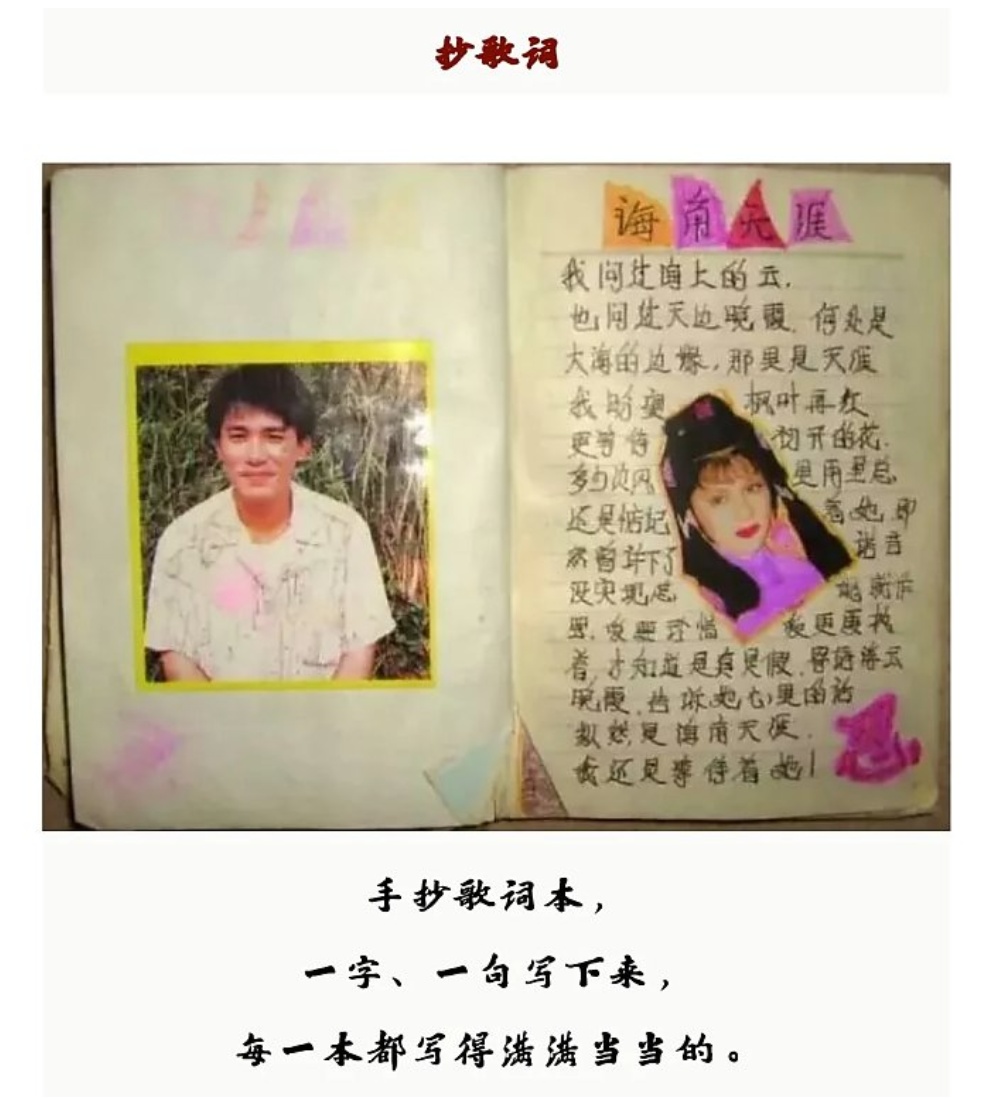 抄歌词
海角天涯
我问过海上的云.
也问过天边晚霞. 何处是
大海的边缘. 那里是天涯
我盼望 枫叶再红
更等待 初开的花.
多少次风 里雨里总
还是惦记 着她 即
然曾许下了 诺言
没实现怎
思. 要更
着, 才知道是真是假. 浮云
晚霞. 告诉她心里的话
纵然是海角天涯.
我还是等待着她!
手抄歌词本，
一字、一句写下来，
每一本都写得满满当当的。